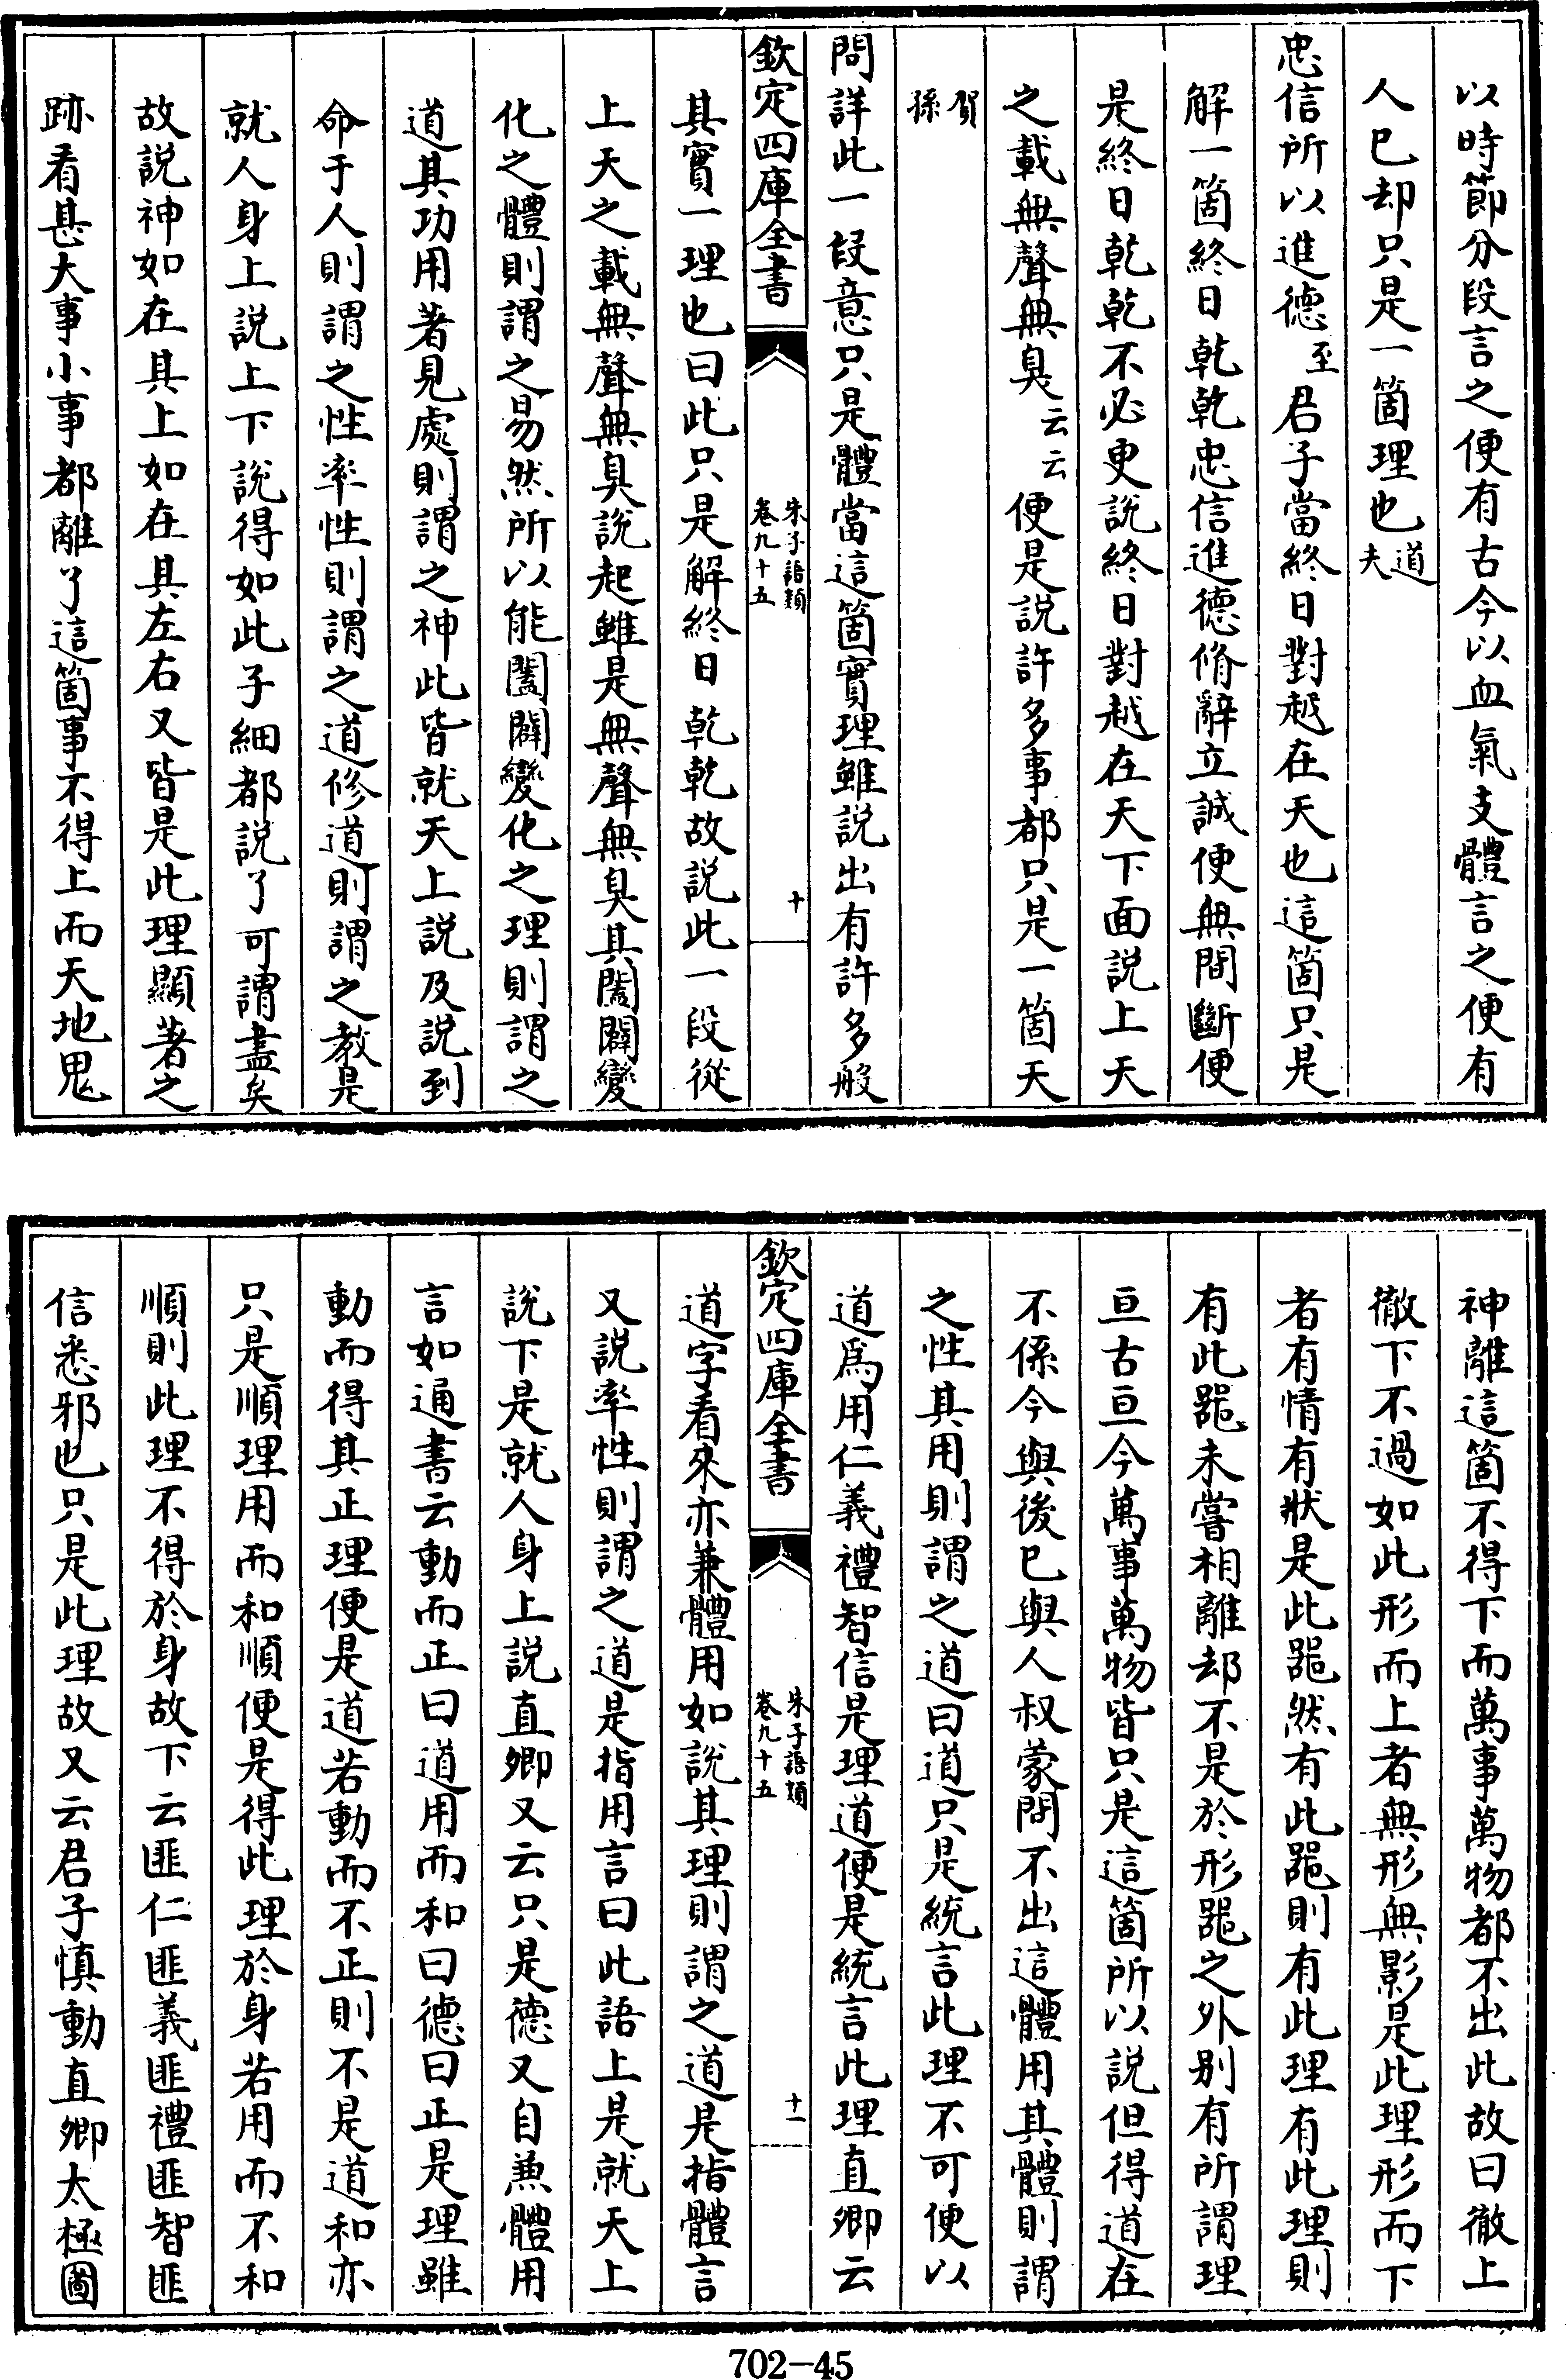 以時節分段言之便有古今以血氣支體言之便有
人已却只是一箇理也道夫
忠信所以進德至君子當終日對越在天也這箇只是
解一箇終日乾乾忠信進德脩辭立誠便無間斷便
是終日乾乾不必更說終日對越在天下面説上天
之載無聲無臭云云便是説許多事都只是一箇天
賀孫
問詳此一段意只是體當這箇實理雖説出有許多般
欽定四庫全書
朱子語類
卷九十五
十
其實一理也曰此只是解終日乾乾故説此一段從
上天之載無聲無臭說起雖是無聲無臭其闔闢變
化之體則謂之易然所以能闔闢變化之理則謂之
道其功用著見處則謂之神此皆就天上説及説到
命于人則謂之性率性則謂之道修道則謂之教是
就人身上説上下說得如此子細都説了可謂盡矣
故説神如在其上如在其左右又皆是此理顯著之
跡看甚大事小事都離了這箇事不得上而天地鬼
神離這箇不得下而萬事萬物都不出此故曰徹上
徹下不過如此形而上者無形無影是此理形而下
者有情有狀是此器然有此器則有此理有此理則
有此器未嘗相離却不是於形器之外别有所謂理
亘古亘今萬事萬物皆只是這箇所以説但得道在
不係今與後已與人叔蒙問不出這體用其體則謂
之性其用則謂之道曰道只是統言此理不可便以
道爲用仁義禮智信是理道便是統言此理直卿云
欽定四庫全書
朱子語類
卷九十五
十一
道字看來亦兼體用如說其理則謂之道是指體言
又説率性則謂之道是指用言曰此語上是就天上
説下是就人身上説直卿又云只是德又自兼體用
言如通書云動而正曰道用而和曰德曰正是理雖
動而得其正理便是道若動而不正則不是道和亦
只是順理用而和順便是得此理於身若用而不和
順則此理不得於身故下云匪仁匪義匪禮匪智匪
信悉邪也只是此理故又云君子慎動直卿太極圖
702-45